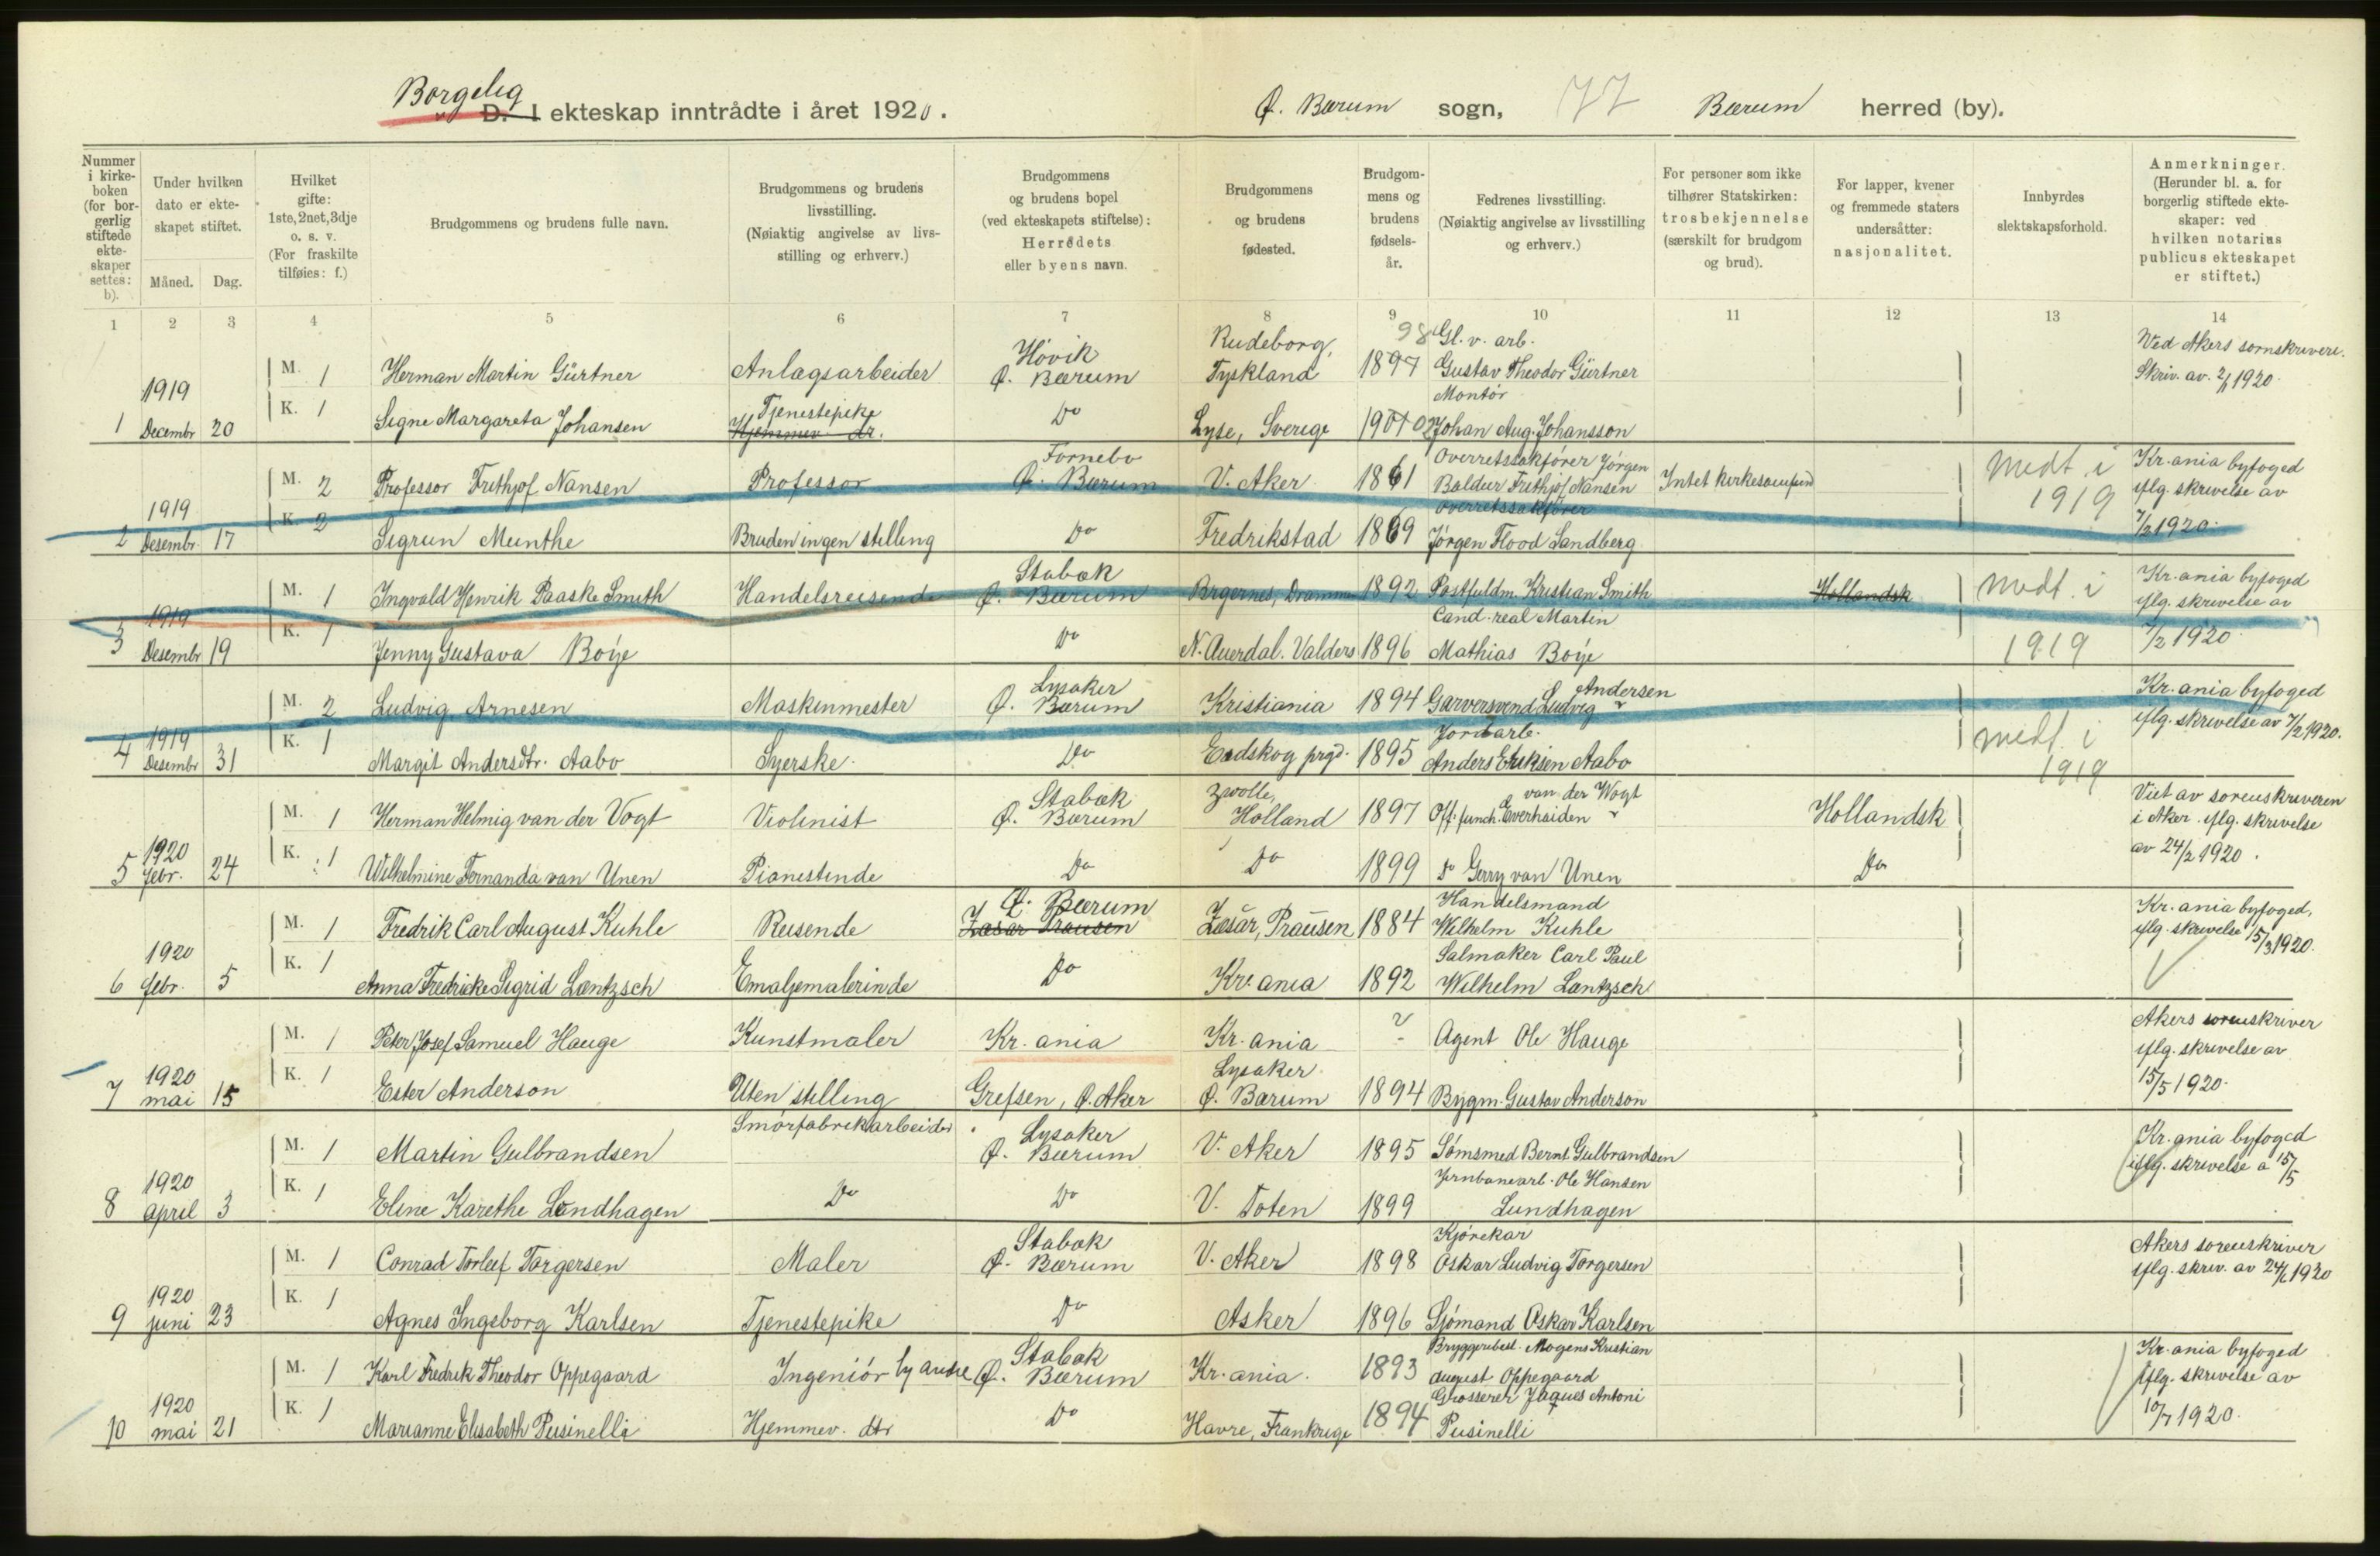 Borgelig
D. I ekteskap inntrådte i året 1920.
Ø. Bærum sogn, 77 Bærum herred (by).
Nummer i kirkeboken (for borgerlig stiftede ekteskaper settes: b).
Under hvilken dato er ekteskapet stiftet.
Måned. Dag.
Hvilket gifte: 1ste, 2net, 3dje o. s. v. (For fraskilte tilføies: f.)
Brudgommens og brudens fulle navn.
Brudgommens og brudens livsstilling. (Nøiaktig angivelse av livsstilling og erhverv.)
Brudgommens og brudens bopel (ved ekteskapets stiftelse): Herredets eller byens navn.
Brudgommens og brudens fødested.
Brudgommens og brudens fødselsår.
Fedrenes livsstilling. (Nøiaktig angivelse av livsstilling og erhverv.)
For personer som ikke tilhører Statskirken: trosbekjennelse (særskilt for brudgom og brud).
For lapper, kvener og fremmede staters undersåtter: nasjonalitet.
Innbyrdes slektskapsforhold.
Anmerkninger. (Herunder bl. a. for borgerlig stiftede ekteskaper: ved hvilken notarius publicus ekteskapet er stiftet.)
1 2 3 4 5 6 7 8 9 10 11 12 13 14
1 1919 Decembr 20
M. 1 Herman Martin Gürtner Anlægsarbeider Høvik Ø. Bærum Rudeborg, Tyskland 1897 98 Gl. v. arb. Gustav Theodor Gürtner
K. 1 Signe Margareta Johansen Tjenestepike Hjemmev. dtr. Do Lyse, Sverige 1901 02 Montör Johan Aug. Johansson
Ved Akers sornskriveri. Skriv. av. 2/1 1920.
2 1919 Desembr. 17
M. 2 Professor Frithjof Nansen Professor Fornebo Ø. Bærum V. Aker 1861 Overretssakfører Jørgen Baldur Frithjof Nansen Intet kirkesamfund
K. 2 Sigrun Munthe Bruden ingen stilling Do Fredrikstad 1869 Overretssakfører Jørgen Flood Sandberg
medt. i 1919
Kr.ania byfoged iflg. skrivelse av 7/2 1920.
3 1919 Desembr 19
M. 1 Ingvald Henrik Paaske Smith Handelsreisende Stabæk Ø. Bærum Bragernes, Drammen 1892 Postfuldm. Kristian Smith Hollandsk
K. 1 Jenny Gustava Boÿe Do N. Auerdal. Valders 1896 Cand. real Martin Mathias Boÿe
medt. i 1919
Kr.ania byfoged iflg. skrivelse av 7/2 1920.
4 1919 Desembr 31
M. 2 Ludvig Arnesen Maskinmester Lysaker Ø. Bærum Kristiania 1894 Garversvend Ludvig Andersen
K. 1 Margit Andersdtr. Aabo Syerske Do Eidskog prgd. 1895 Jordarb. Anders Eriksen Aabo
medt. i 1919
Kr.ania byfoged iflg. skrivelse av 7/2 1920.
5 1920 febr. 24
M. 1 Herman Helmig van der Vogt Violinist Stabæk Ø. Bærum Zwolle, Holland 1897 Off. funch. Everhaiden van der Wogt Hollandsk
K. 1 Wilhelmine Fernanda van Unen Pianistinde Do Do 1899 Do Gerry van Unen Do
Viet av sorenskriveren i Aker. iflg. skrivelse av 24/2 1920.
6 1920 febr. 5
M. 1 Fredrik Carl August Kuhle Reisende Ø. Bærum Zæsar Prausen Zæsar, Prausen 1884 Handelsmand Wilhelm Kuhle
K. 1 Anna Fredricke Sigrid Lantzsch Emaljemalerinde Do Kr.ania 1892 Salmaker Carl Paul Wilhelm Lantzsch
Kr.ania byfoged, iflg. skrivelse 15/3 1920.
7 1920 mai 15
M. 1 Peter Josef Samuel Hauge Kunstmaler Kr.ania Kr.ania ? Agent Ole Hauge
K. 1 Ester Anderson Uten stilling Grefsen, Ø. Aker Lysaker Ø. Bærum 1894 Bygm. Gustav Anderson
Akers sorenskriver iflg. skrivelse av 15/5 1920.
8 1920 april 3
M. 1 Martin Gulbrandsen Smørfabrikarbeider Lysaker Ø. Bærum V. Aker 1895 Sømsmed Bernt Gulbrandsen
K. 1 Eline Karethe Lundhagen Do Do V. Toten 1899 Jernbanearb. Ole Hansen Lundhagen
Kr.ania byfoged iflg. skrivelse a 15/5
9 1920 juni 23
M. 1 Conrad Torleif Torgersen Maler Stabæk Ø. Bærum V. Aker 1898 Kjørekar Oskar Ludvig Torgersen
K. 1 Agnes Ingeborg Karlsen Tjenestepike Do Asker 1896 Sjømand Oskar Karlsen
Akers sorenskriver iflg. skriv. av 24/6 1920
10 1920 mai 21
M. 1 Karl Fredrik Theodor Oppegaard Ingeniør Stabæk Ø. Bærum Kr.ania. 1893 Bryggeribest. Mogens Kristian August Oppegaard
K. 1 Marianne Elisabeth Pusinelli Hjemmev. dtr Do Havre, Frankrige 1894 Grosserer Jaques Antoni Pusinelli
Kr.ania byfoged iflg. skrivelse av 10/7 1920.